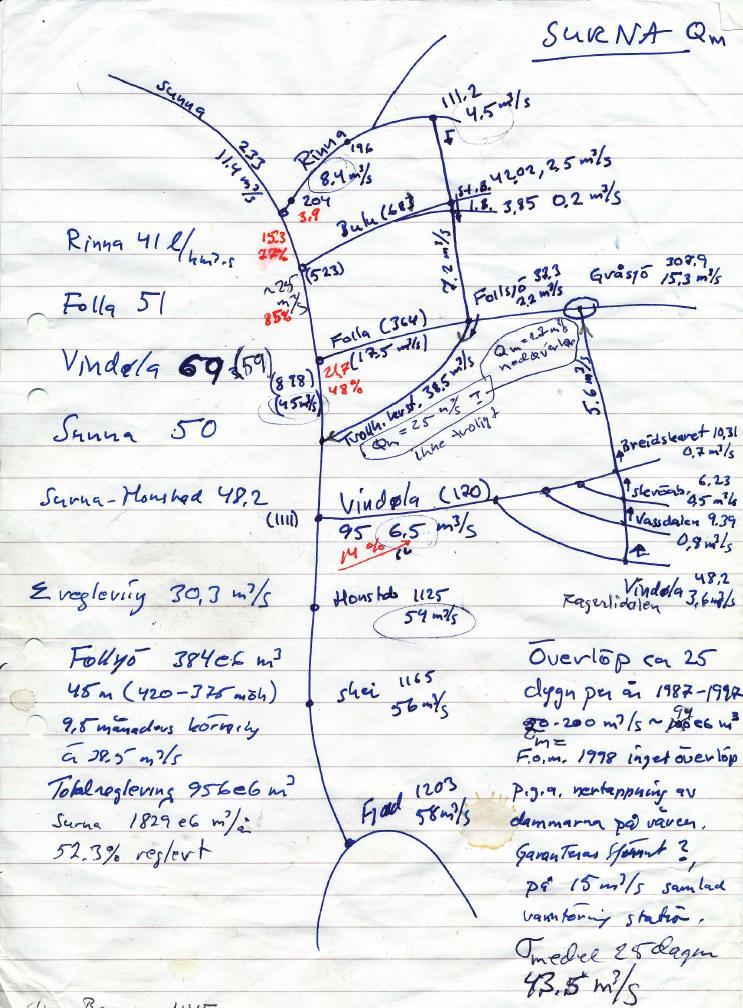 SURNA Qm
Surna
233
11.4 m³/s
Rinna
196
8.4 m³/s
204
3.9
111.2
4.5 m³/s
42.02, 2.5 m³/s
3,85 0.2 m³/s
Bulu (68)
15.3
27%
(523)
~25
m³/s
85%
7.2 m³/s
Rinna 41 l/km²·s
Folla 51
Vindøla 69 (59)
Surna 50
Surna-Honstad 48,2
Folla (364)
(17.5 m³/s)
21,7
48%
(898)
(45 m³/s)
Follsjø 32,3
2,2 m³/s
Gråsjö 308.9
15,3 m³/s
Trollh. kraftst. 38.5 m³/s
Qm = 25 m³/s
inne troligt
5.6 m³/s
Breidskaret 10,31
0,7 m³/s
6.23
0,5 m³/s
Vassdalen 9.39
0,8 m³/s
Vindøla 48.2
3,6 m³/s
(1111)
Vindøla (120)
95 6,5 m³/s
14%
Σ reglering 30,3 m³/s
Honstad 1125
54 m³/s
Skei 1165
56 m³/s
Fjord 1203
58 m³/s
Follsjö 384e6 m³
45m (420-375 möh)
9,5 månaders körning
à 28.5 m³/s
Totalreglering 956e6 m³
Surna 1829e6 m³/år
52.3% reglert
Överlöp ca 25
dygn per år 1987-1997
F.o.m. 1998 inget överlöp
p.g.a. nertappning av
dammarna på våren.
Garanteras
på 15 m³/s samlad
vannföring
medel 25 dagar
43.5 m³/s